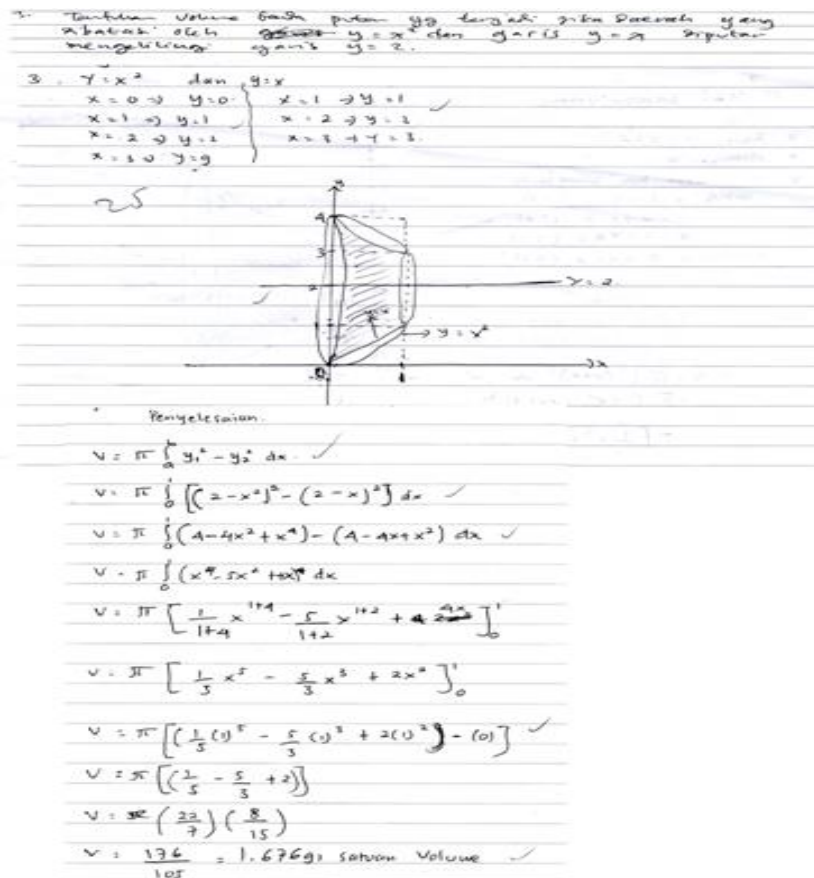 3. Tentukan volume benda putar yg terjadi jika Daerah yang
dibatasi oleh y = x² dan garis y = x diputar
mengelilingi garis y = 2.
3. Y = x² dan y = x
x = 0 → y = 0 x = 1 → y = 1 ✓
x = 1 → y = 1 x = 2 → y = 2
x = 2 → y = 2 x = 3 → Y = 3.
x = 3 → y = 9
25
4
3
2
y = 2.
→ y = x²
0 1 x
Penyelesaian.
V = π ∫ y₁² - y₂² dx ✓
V = π ∫₀¹ [(2-x²)² - (2-x)²] dx ✓
V = π ∫₀¹ (4-4x²+x⁴) - (4-4x+x²) dx ✓
V = π ∫₀¹ (x⁴-5x²+4x) dx
V = π [1/1+4 x¹⁺⁴ - 5/1+2 x¹⁺² + ]₀¹
V = π [1/5 x⁵ - 5/3 x³ + 2x²]₀¹
V = π [(1/5 (1)⁵ - 5/3 (1)³ + 2(1)²) - (0)] ✓
V = π [(1/5 - 5/3 + 2)]
V = (22/7) (8/15)
V = 176/105 = 1.67691 satuan Volume ✓